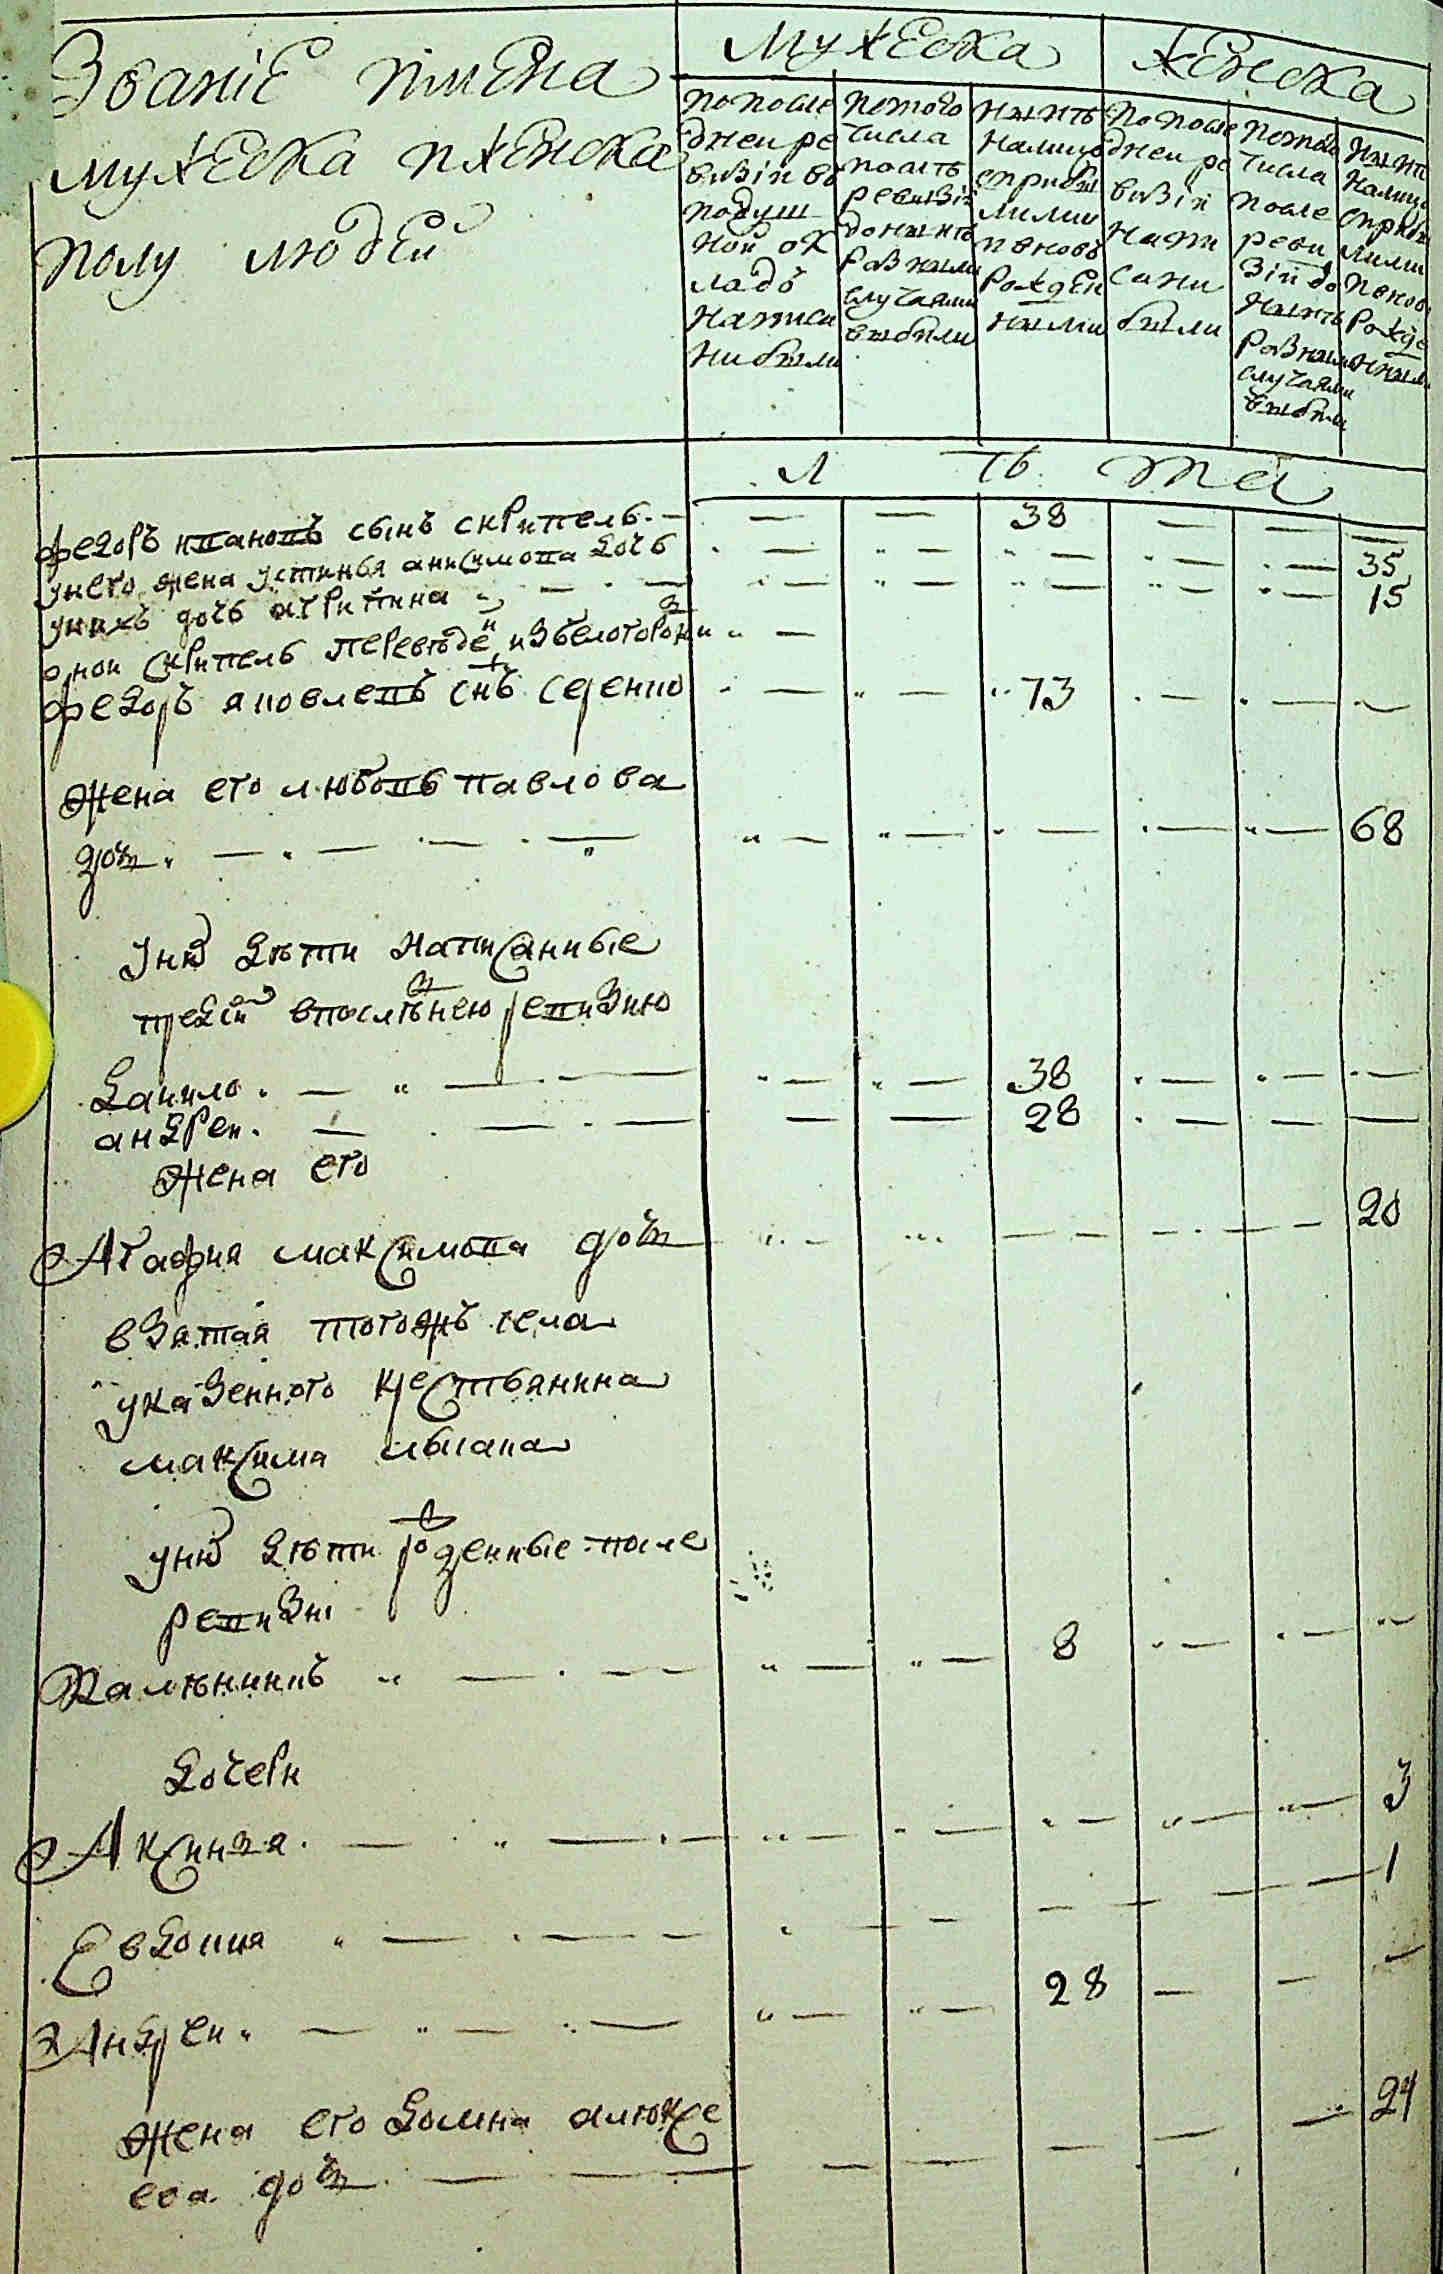 Званіе имена
мужеска иженска
полу людей
Мужеска
Женска
По после
дней ре
визіи во
подуш
ной ок
ладъ
написа
ни были
Ис того
числа
послѣ
ревизіи
до нынѣ
разными
случаями
выбыли
Нынѣ
налицо
с прибы
лыми
и вновь
рожден
ными
По после
дней ре
визіи
напи
саны
были
Ис того
числа
после
реви
зіи до
нынѣ
разными
случаями
выбыли
Нынѣ
налицо
с прибы
лыми
и вновь
рожде
ными
Л ѣ та
Федоръ ивановъ сынъ скрипель — — — 38 — — —
унего жена устинья анисимова дочь — — — — — 35
унихъ дочь агрипина — — — — — 15
оной скрипель переведен из белогородки
Федоръ яковлевъ снъ серенко — — 73 — — —
жена его любовь павлова
дочь — — — — — 68
уних дѣти написанные
пред сим впослѣднею ревизию
данило — — 38 — — —
андреи — — 28 — — —
жена его
Агафия максимова дочь — — — — — 20
взятая тогожъ села
указенного крестьянина
максима
уних дѣти рожденные после
ревизиі
Калѣникъ — — 8 — — —
дочери
Аксинья — — — — — 3
Евдокия — — — — — 1
Андреи — — 28 — — —
жена его домна алюксе
ева дочь — — — — — 24